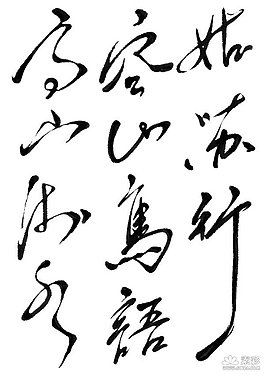 姑蘇行
空山鳥語
高山流水